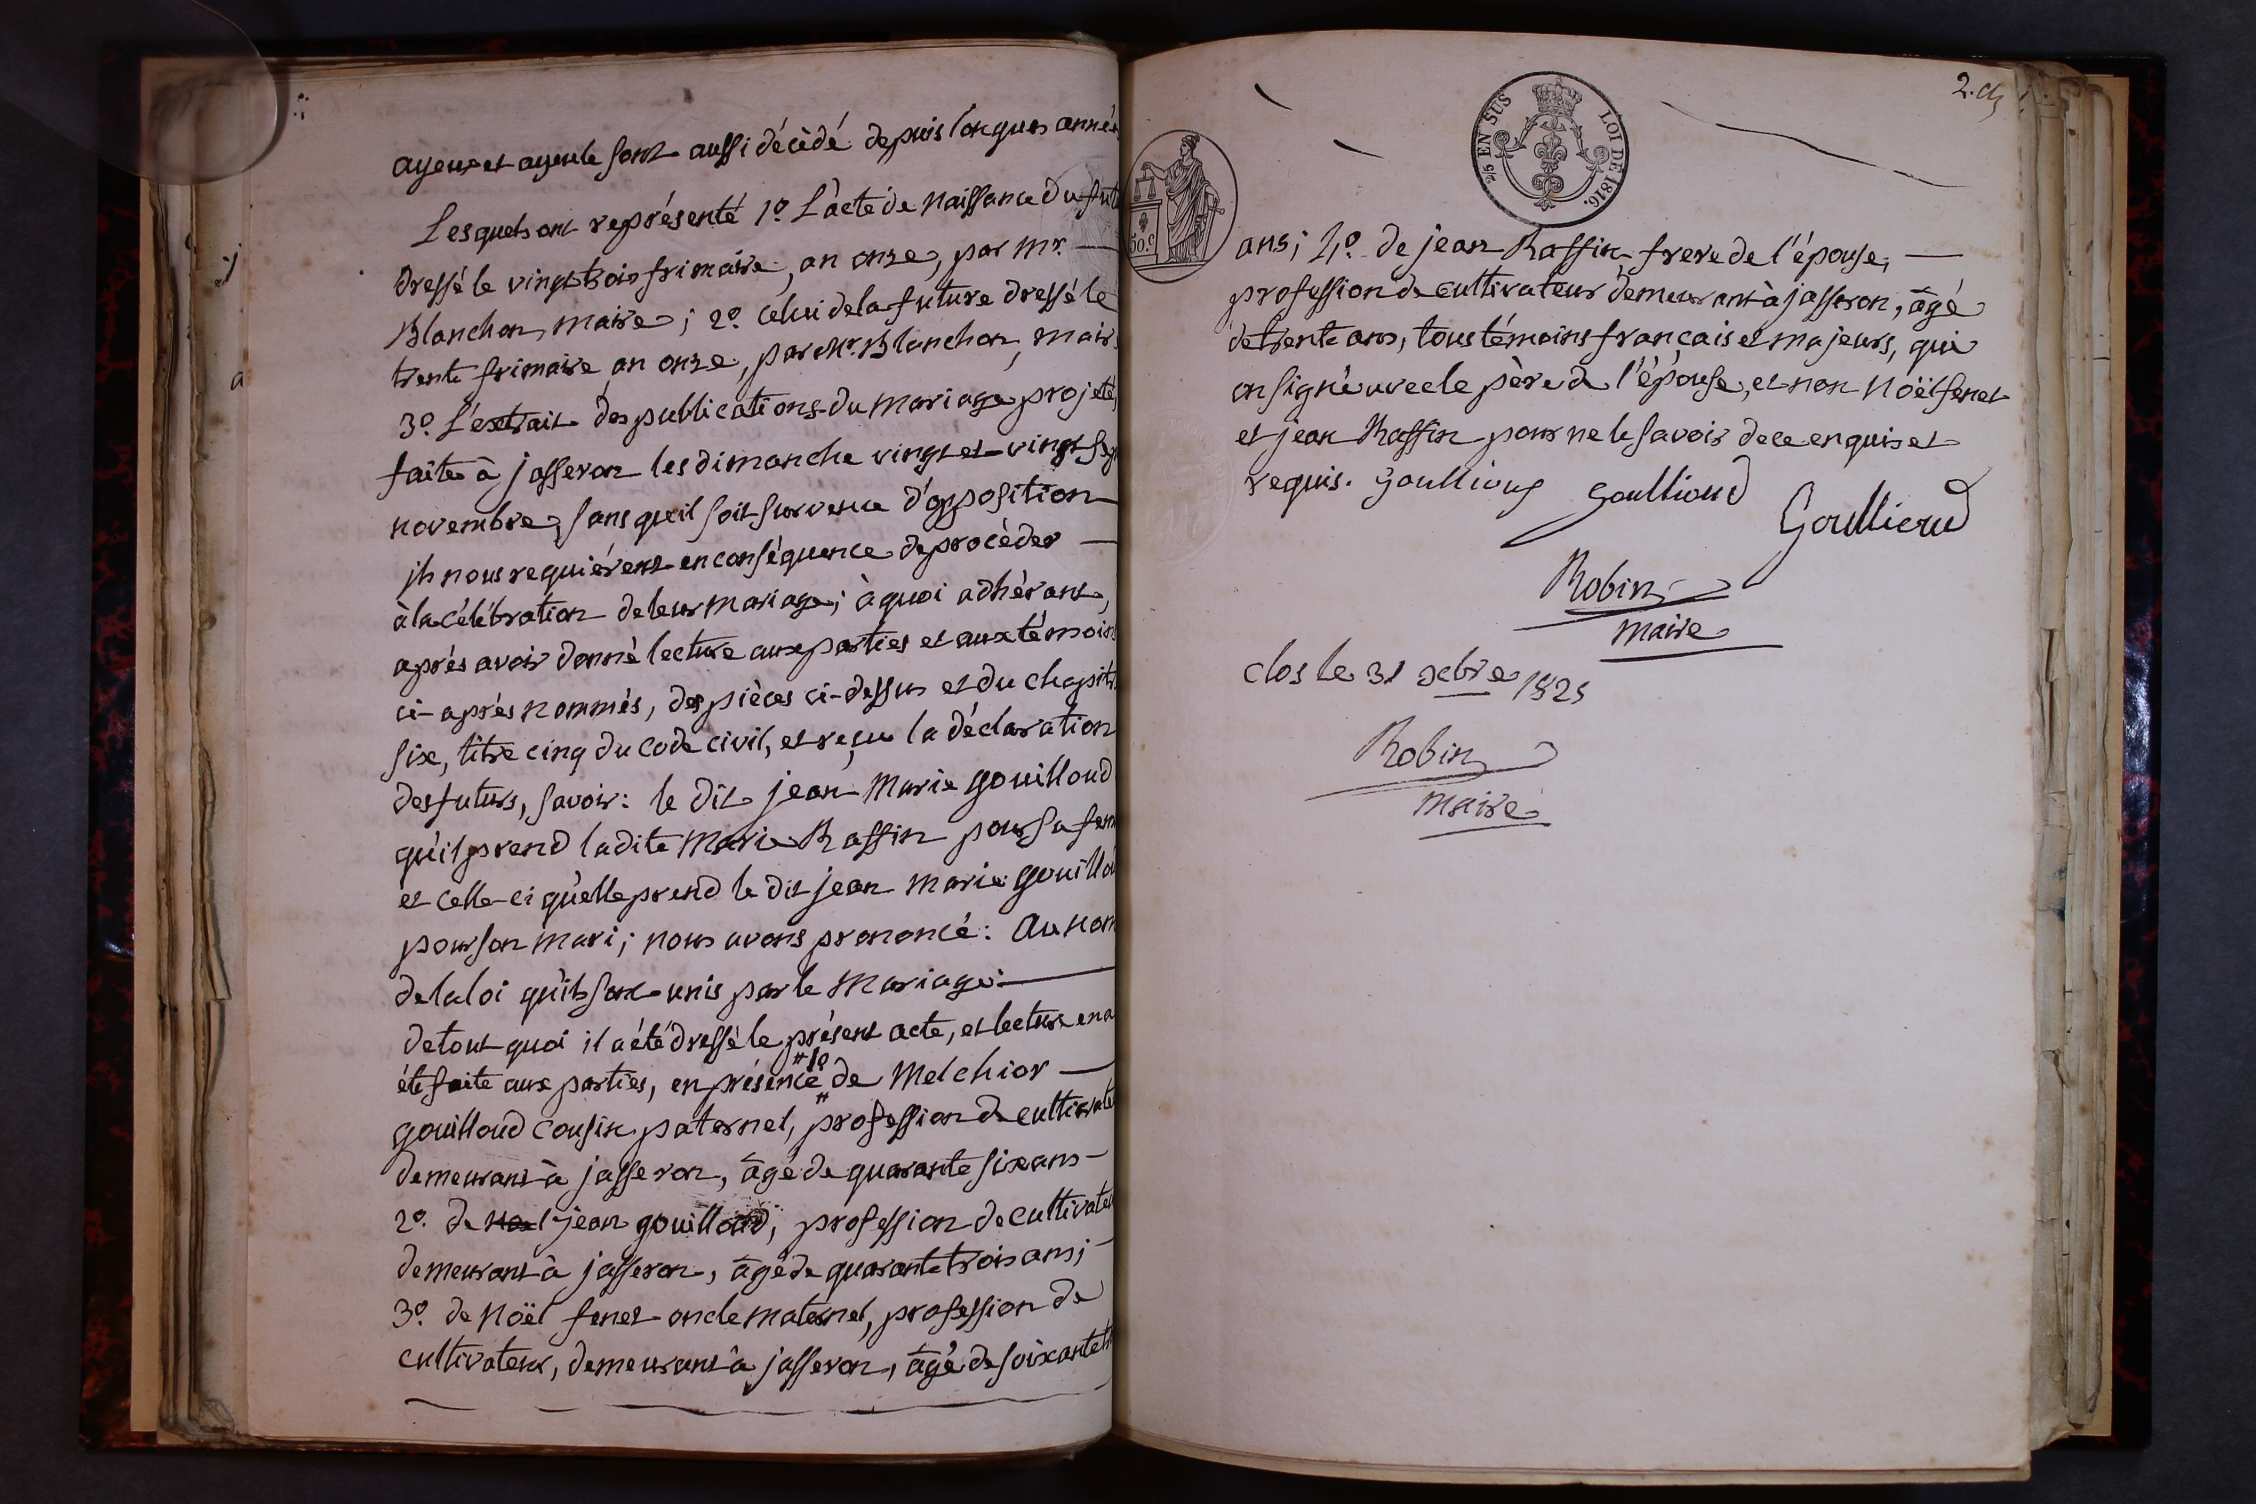 ayeux et ayeule sont aussi décèdé depuis longues années
Lesquels ont représenté 1º. L'acte de naissance du fut
dressé le vingt trois frimaire, an onze, par Mr.
Blanchon, maire; 2º. celui de la future dressé le
trente frimaire an onze, par Mr. Blanchon, maire
3º. L'extrait des publications du mariage projeté,
faite à jasseron les dimanche vingt et vingt sept
novembre, sans qu'il soit survenue d'opposition
ils nous requièrent en conséquence de procèder
à la célébration de leur mariage; à quoi adhérant,
après avoir donné lecture aux parties et aux témoins
ci-après nommés, des pièces ci-dessus et du chapitre
six, titre cinq du code civil, et reçu la déclaration
des futurs, savoir: le dit jean Marie gouilloud
qu'il prend ladite Marie Raffin pour sa fem
et celle-ci qu'elle prend le dit jean Marie gouillou
pour son mari; nous avons prononcé: Au nom
de la loi qu'ils sont unis par le Mariage.
de tout quoi il a été dressé le présent acte, et lecture en a
été faite aux parties, en présence # 1º # de Melchior
gouilloud cousin paternel, profession de cultivate
demeurant à jasseron, âgé de quarante six ans
2º. de jean gouilloud, profession de cultivateu
demeurant à jasseron, âgé de quarante trois ans;
3º. de Noël fenet oncle maternel, profession de
cultivateur, demeurant à jasseron, âgé de soixante
2.
2/5 EN SUS LOI DE 1816.
50.c
ans; 4º. de jean Raffin frere de l'épouse,
profession de cultivateur demeurant à jasseron, âgé
de trente ans, tous témoins français et majeurs, qui
on signé avec le père de l'épouse, et non Noël fenet
et jean Raffin pour ne le savoir de ce enquis et
requis. Goullioud Goullioud
Goullioud
Robin
maire
clos le 31 xcbre 1825
Robin
maire